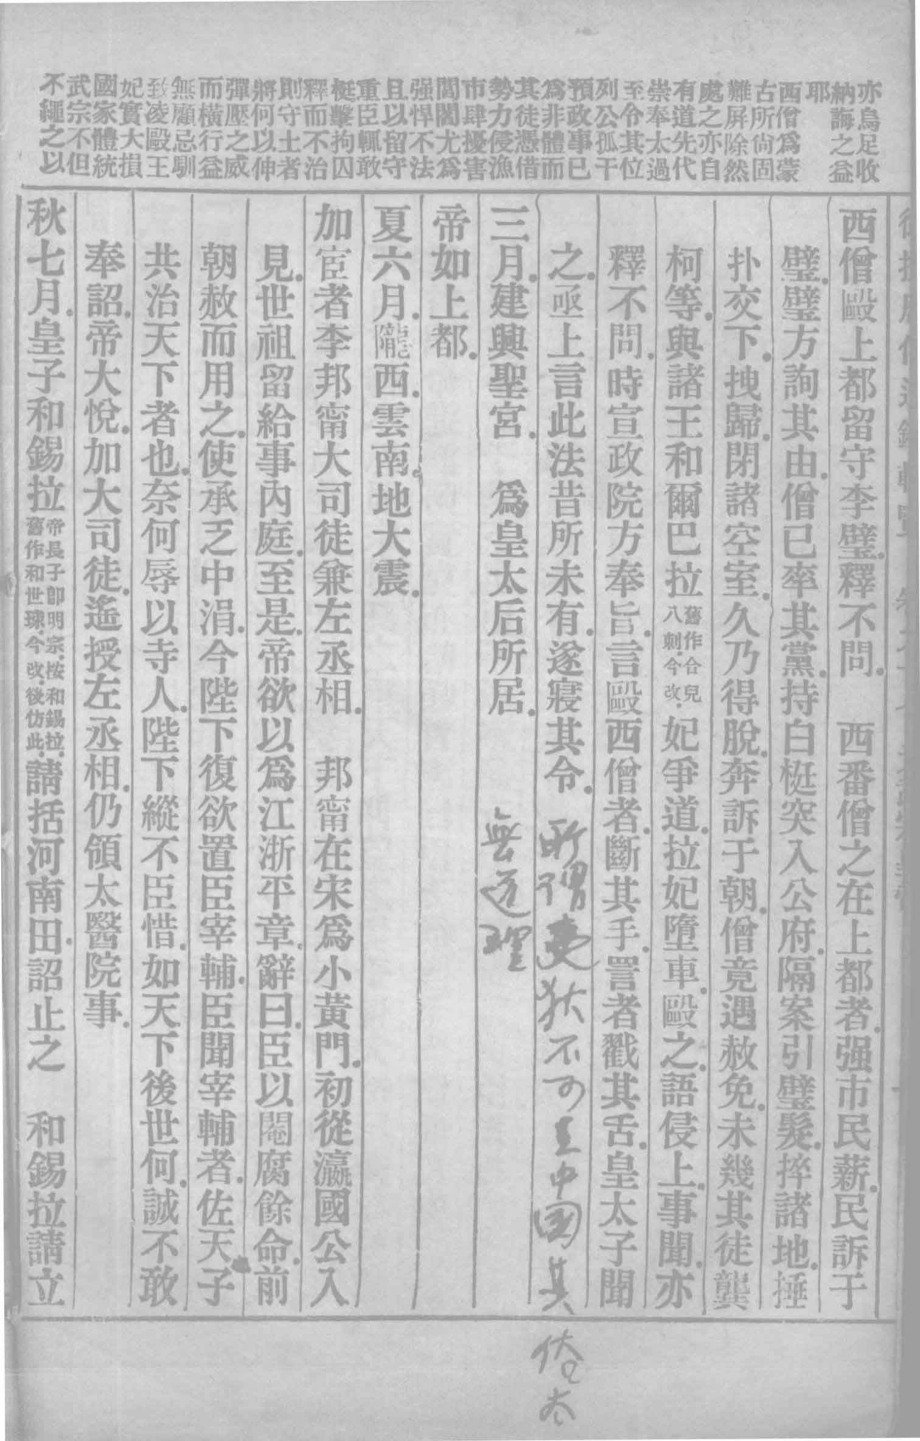 亦烏足收
納誨之益
耶
西僧爲蒙
古所尚固
難屏除然
處之亦自
有道先代
崇奉太過
至令其位
列公孤干
預政事已
爲非體而
其徒憑借
勢力侵漁
市肆擾害
閭閻尤爲
强悍不法
且以留守
重臣輒敢
梃擊拘囚
釋而不治
則守土者
將何以伸
彈壓之威
而橫行益
無顧忌馴
致凌毆王
妃實大損
國家體統
武宗不但
不繩之以
西僧毆上都留守李璧釋不問 西番僧之在上都者强市民薪民訴于
璧璧方詢其由僧已率其黨持白梃突入公府隔案引璧髮捽諸地捶
扑交下拽歸閉諸空室久乃得脫奔訴于朝僧竟遇赦免未幾其徒龔
柯等與諸王和爾巴拉舊作合兒八剌今改妃爭道拉妃墮車毆之語侵上事聞亦
釋不問時宣政院方奉旨言毆西僧者斷其手詈者戳其舌皇太子聞
之亟上言此法昔所未有遂寢其令 所謂夷狄不可主中國其
無道理
三月建興聖宮 爲皇太后所居
帝如上都
夏六月隴西雲南地大震
加宦者李邦甯大司徒兼左丞相 邦甯在宋爲小黃門初從瀛國公入
見世祖留給事內庭至是帝欲以爲江浙平章辭曰臣以閹腐餘命前
朝赦而用之使承乏中涓今陛下復欲置臣宰輔臣聞宰輔者佐天子
共治天下者也奈何辱以寺人陛下縱不臣惜如天下後世何誠不敢
奉詔帝大悅加大司徒遙授左丞相仍領太醫院事
秋七月皇子和錫拉帝長子卽明宗按和錫拉舊作和世㻋今改後仿此請括河南田詔止之 和錫拉請立